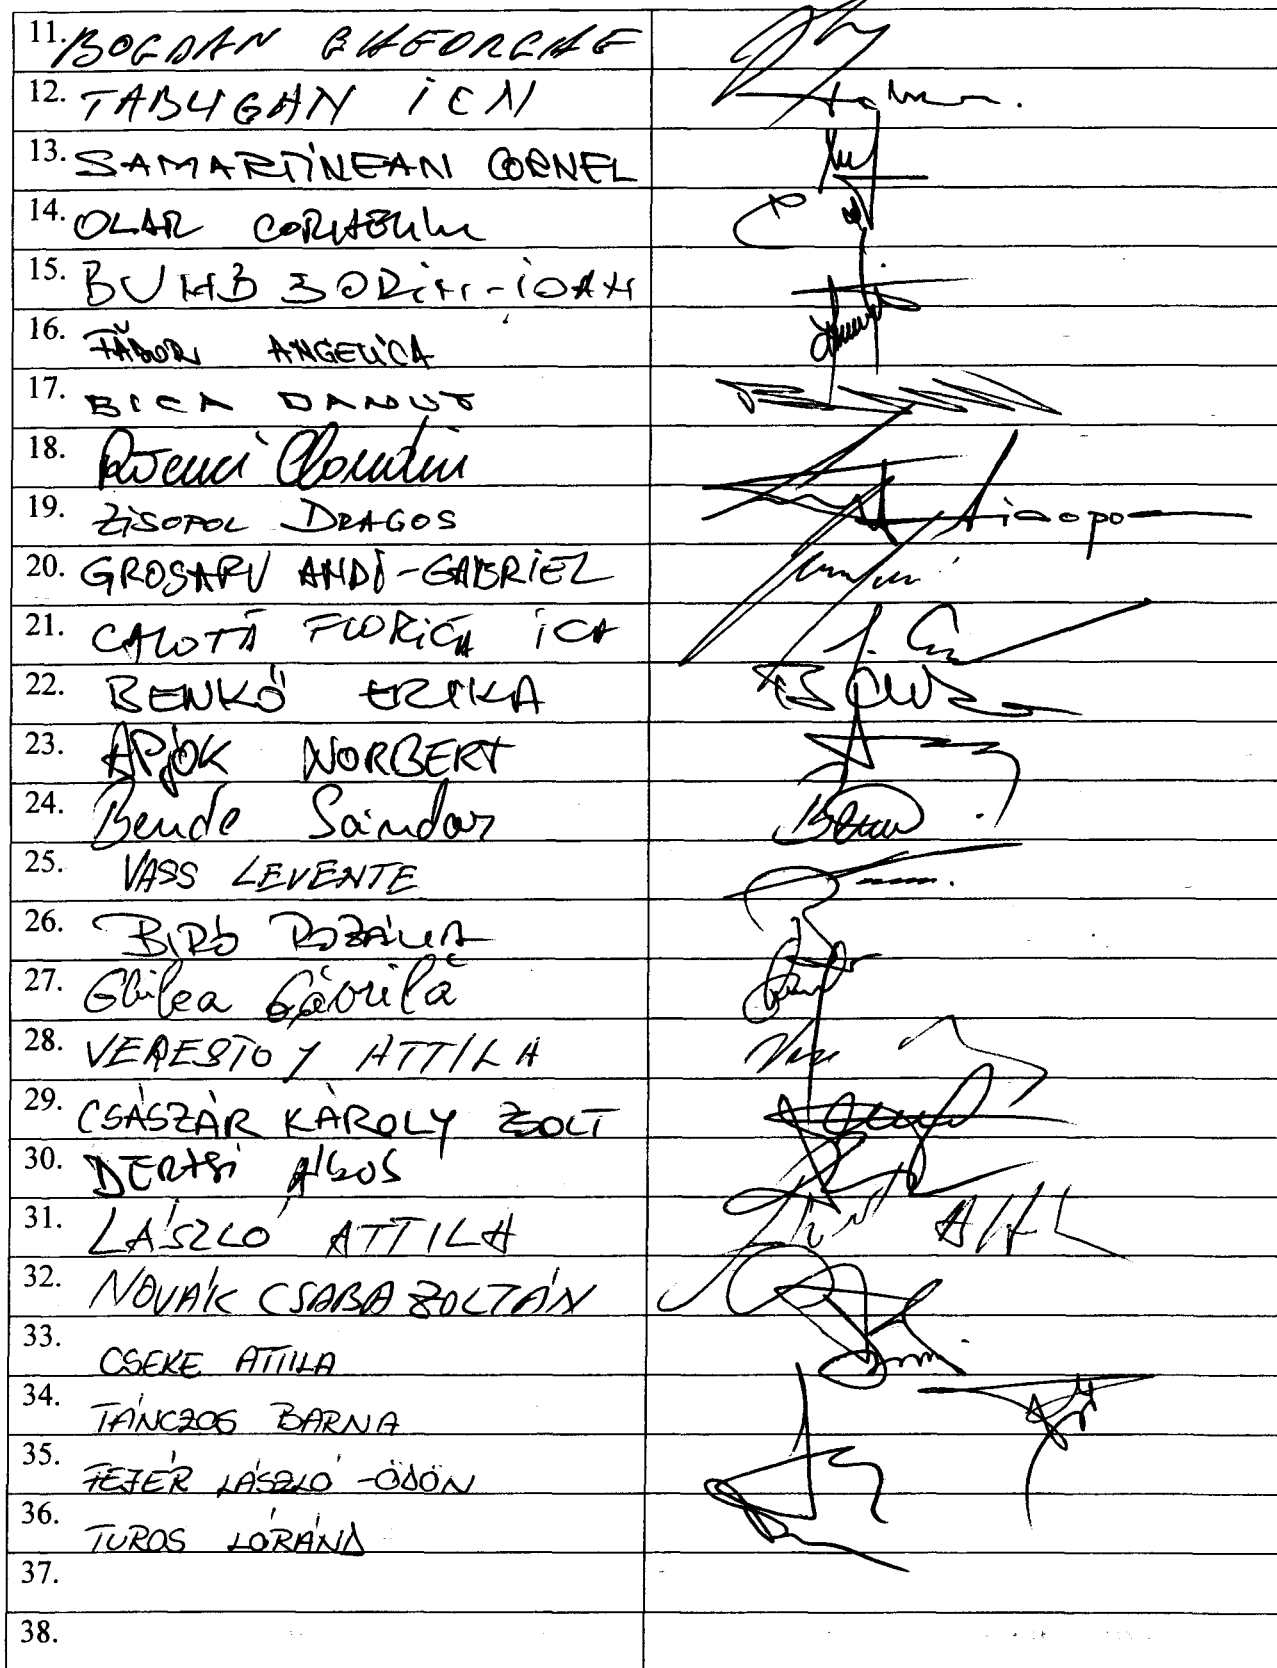 11. BOGDAN GHEORGHE
12. TABUGAN ION
13. SAMARTINEAN CORNEL
14. OLAR CORNELIU
15. BUMB SORIN-IOAN
16. FĂDOR ANGELICA
17. BICA DANUT
18. Claudiu
19. ZISOPOL DRAGOS
20. GROSARU ANDI-GABRIEL
21. CALOTĂ FLORICA ICA
22. BENKŐ ERIKA
23. APJOK NORBERT
24. Bende Sándor
25. VASS LEVENTE
26. BIRÓ ROZÁLIA
27. Ghilea Găvrilă
28. VERESTOY ATTILA
29. CSÁSZÁR KÁROLY ZSOLT
30. DERZSI ÁKOS
31. LÁSZLÓ ATTILA
32. NOVÁK CSABA ZOLTÁN
33. CSEKE ATTILA
34. TÁNCZOS BARNA
35. FEJÉR LÁSZLÓ-ÖDÖN
36. TUROS LÓRÁND
37.
38.